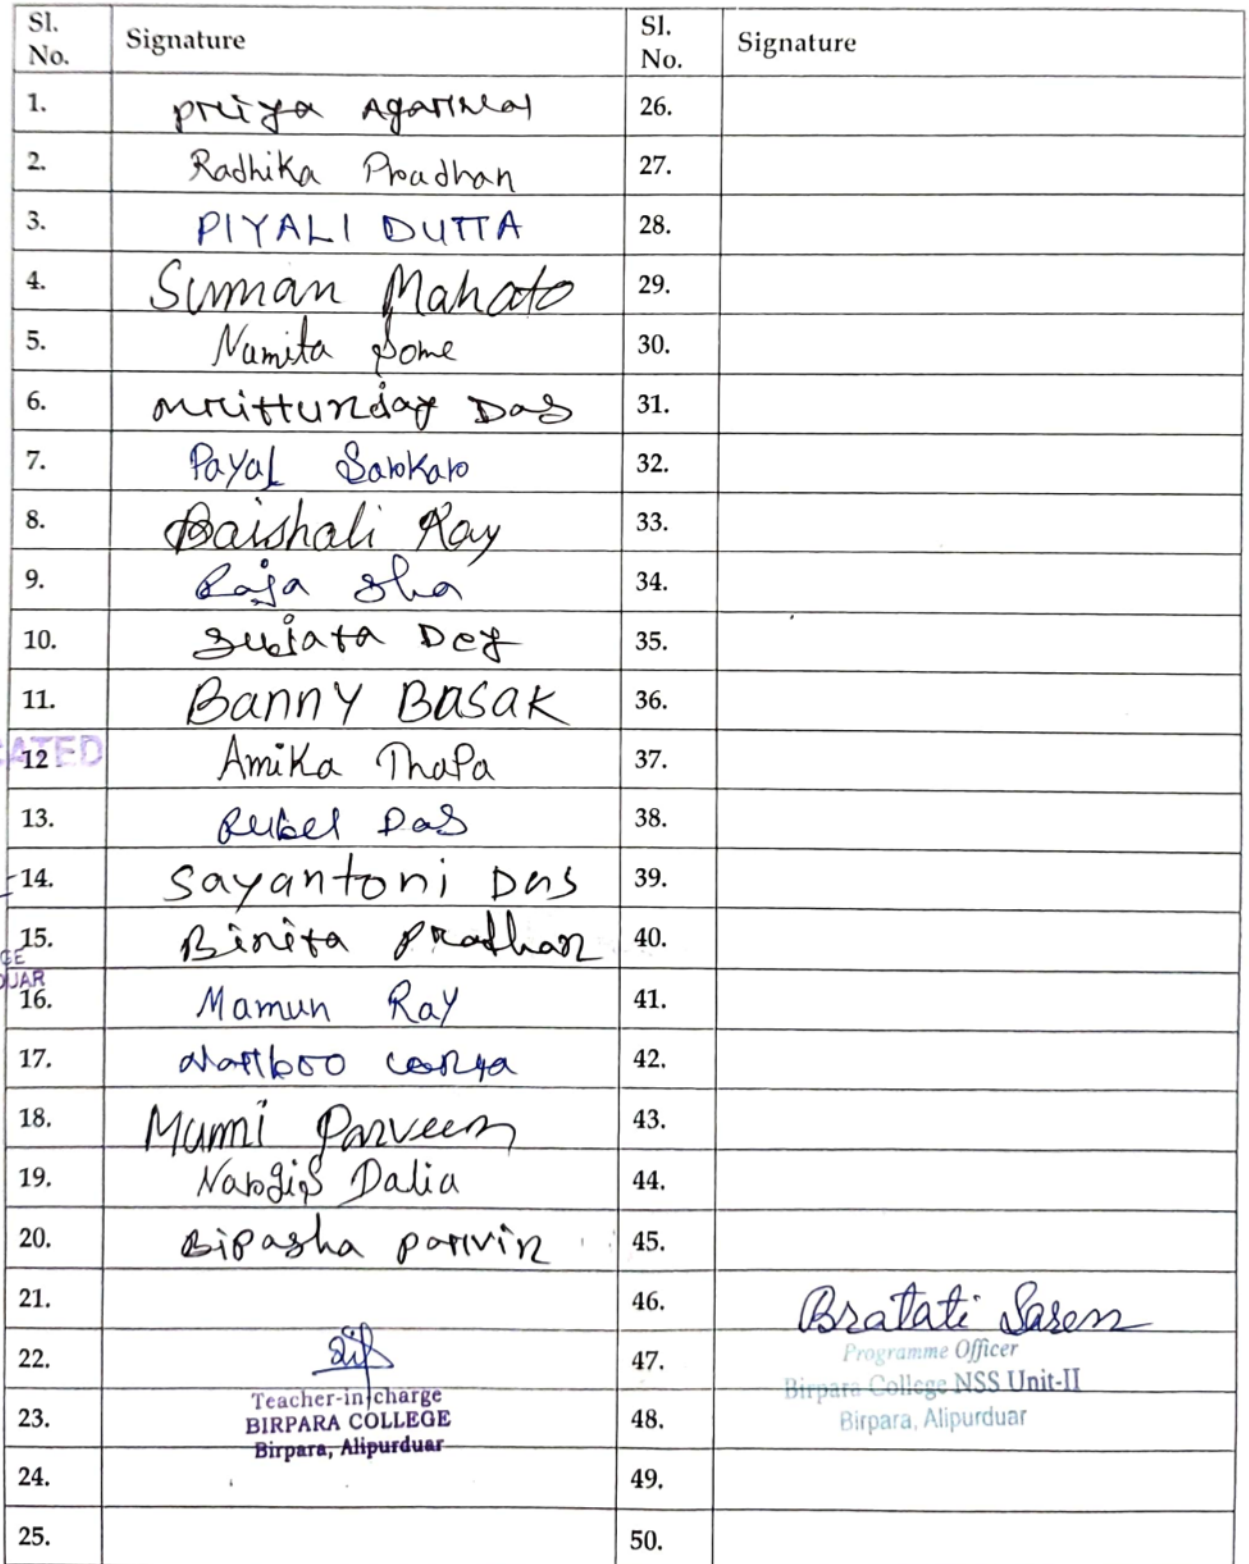 Sl. No. Signature Sl. No. Signature
1. Priya Agarwal 26.
2. Radhika Pradhan 27.
3. PIYALI DUTTA 28.
4. Suman Mahato 29.
5. Namita Some 30.
6. Mrittunjay Das 31.
7. Payal Sarkar 32.
8. Baishali Ray 33.
9. Raja Sha 34.
10. Sujata Dey 35.
11. Banny Basak 36.
CATED
12 Amika Thapa 37.
13. Rubel Das 38.
14. Sayantoni Das 39.
15. Binita Pradhan 40.
GE
DUAR
16. Mamun Ray 41.
17. 42.
18. Mumni Parveen 43.
19. Nargis Dalia 44.
20. Bipasha Parvin 45.
21. 46. Bratati Saren
22. 47. Programme Officer
Teacher-in-charge Birpara College NSS Unit-II
23. BIRPARA COLLEGE 48. Birpara, Alipurduar
Birpara, Alipurduar
24. 49.
25. 50.